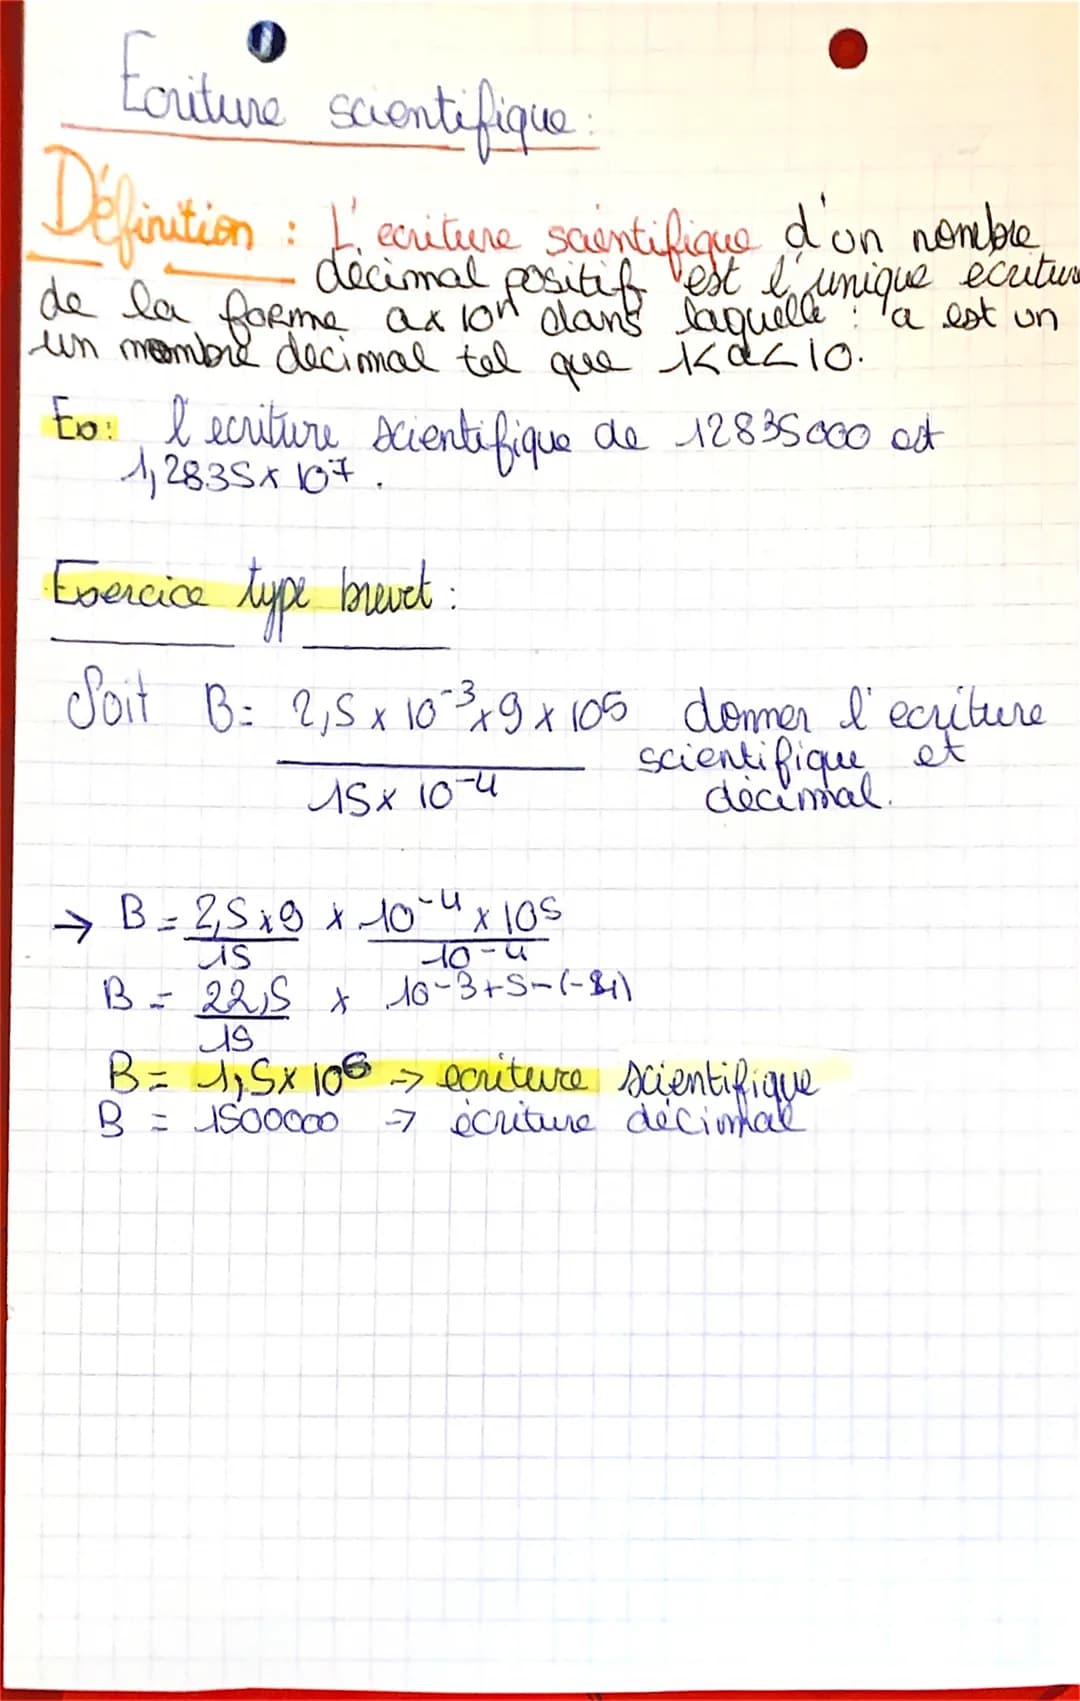 Ecriture scientifique :
Définition : L'ecriture scientifique d'un nombre
décimal positif est l'unique ecriture
de la forme a x 10ⁿ dans laquelle : a est un
un nombre decimal tel que 1<a<10.
Ex: l'ecriture scientifique de 12835000 est
1,2835 x 10⁷.
Exercice type brevet :
Soit B = 2,5 x 10⁻³ x 9 x 10⁵ donner l'ecriture
scientifique et
15 x 10⁻⁴ décimal.
→ B = 2,5 x 9 x 10⁻⁴ x 10⁵
15 10⁻⁴
B = 22,5 x 10⁻³⁺⁵⁻⁽⁻⁴⁾
15
B = 1,5 x 10⁶ → ecriture scientifique
B = 1500000 → écriture décimal